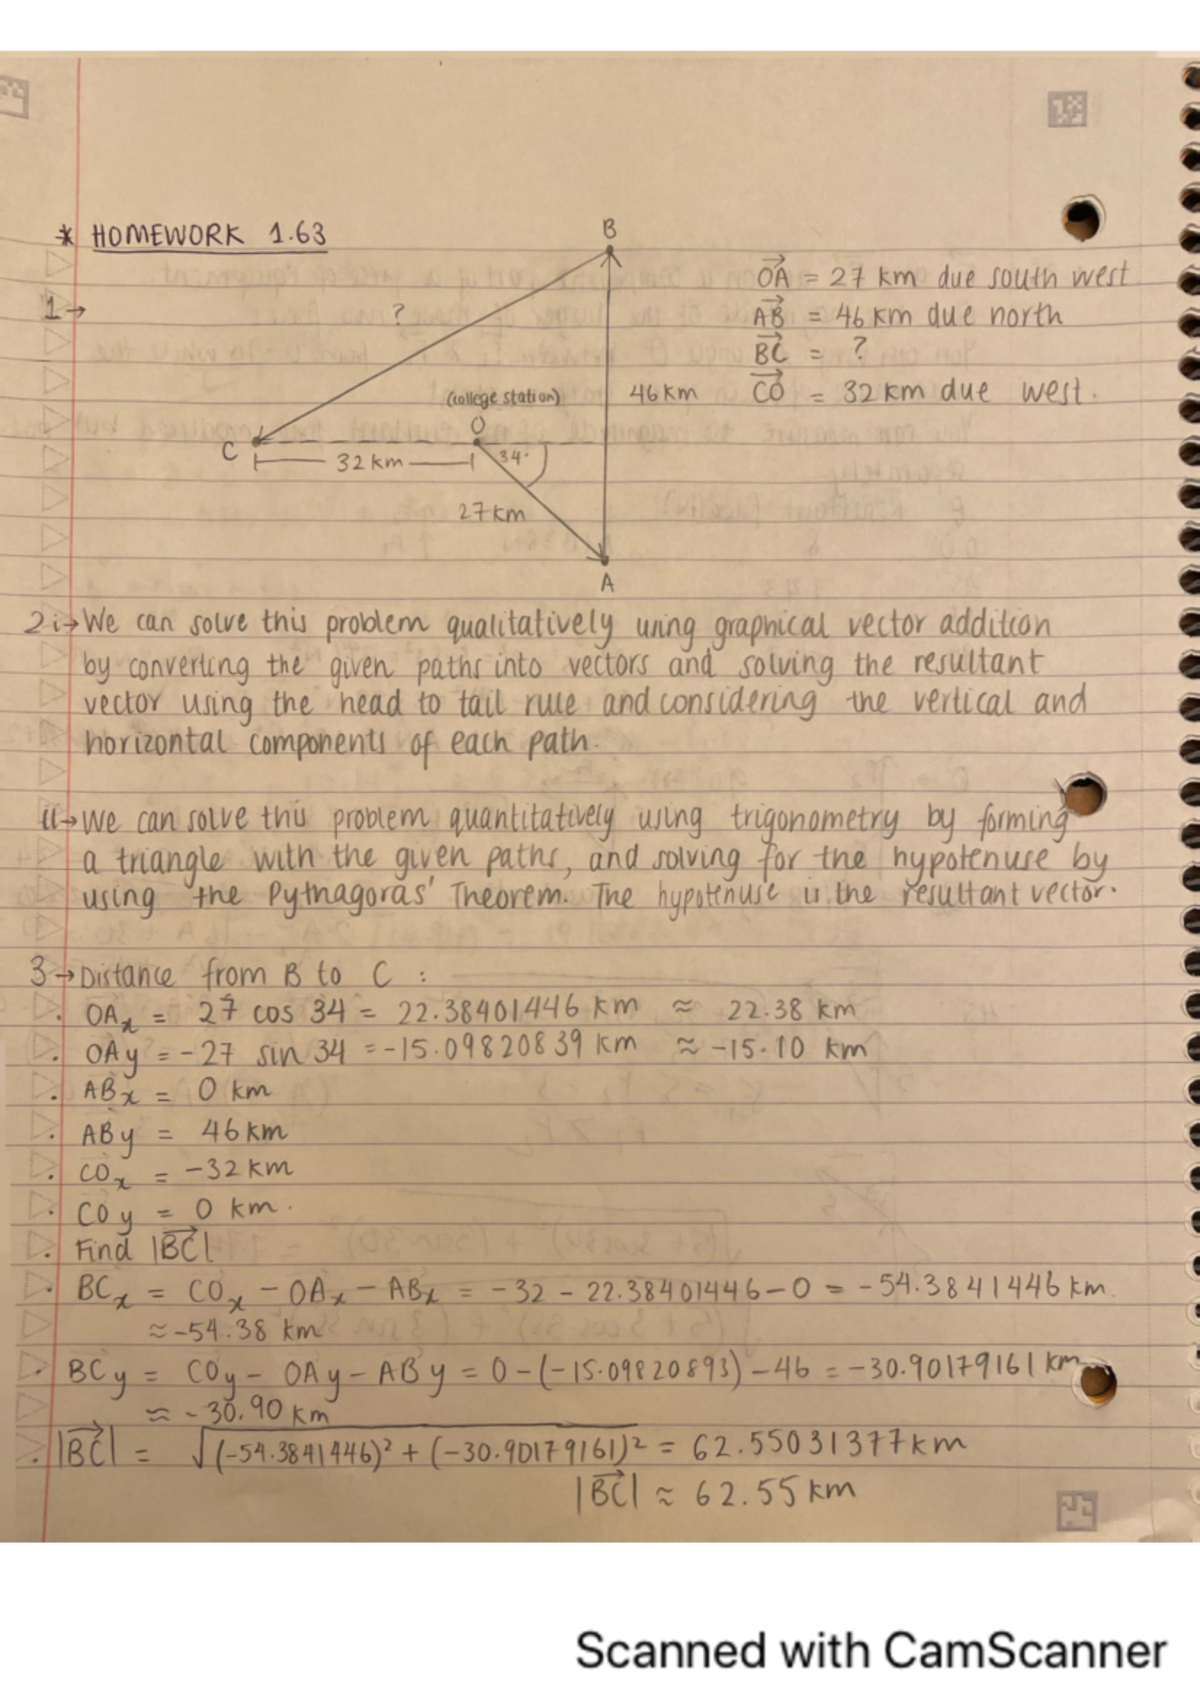 * HOMEWORK 1.63
B
1→
?
OA = 27 km due south west
AB = 46 km due north
BC = ?
CO = 32 km due west.
(college station)
46 km
C
O
34°
32 km
27 km
A
2 i→ We can solve this problem qualitatively using graphical vector addition
by converting the given paths into vectors and solving the resultant
vector using the head to tail rule and considering the vertical and
horizontal components of each path.
ii→ We can solve this problem quantitatively using trigonometry by forming
a triangle with the given paths, and solving for the hypotenuse by
using the Pythagoras' Theorem. The hypotenuse is the resultant vector.
3→ Distance from B to C :
. OAx = 27 cos 34 = 22.38401446 km ≈ 22.38 km
. OAy = -27 sin 34 = -15.09820839 km ≈ -15.10 km
. ABx = 0 km
. ABy = 46 km
. COx = -32 km
. COy = 0 km.
. Find |BC|.
. BCx = COx - OAx - ABx = -32 - 22.38401446 - 0 = -54.3841446 km.
≈ -54.38 km
. BCy = COy - OAy - ABy = 0 - (-15.09820893) - 46 = -30.90179161 km
≈ -30.90 km
. |BC| = √(-54.3841446)² + (-30.90179161)² = 62.55031377 km
|BC| ≈ 62.55 km
Scanned with CamScanner